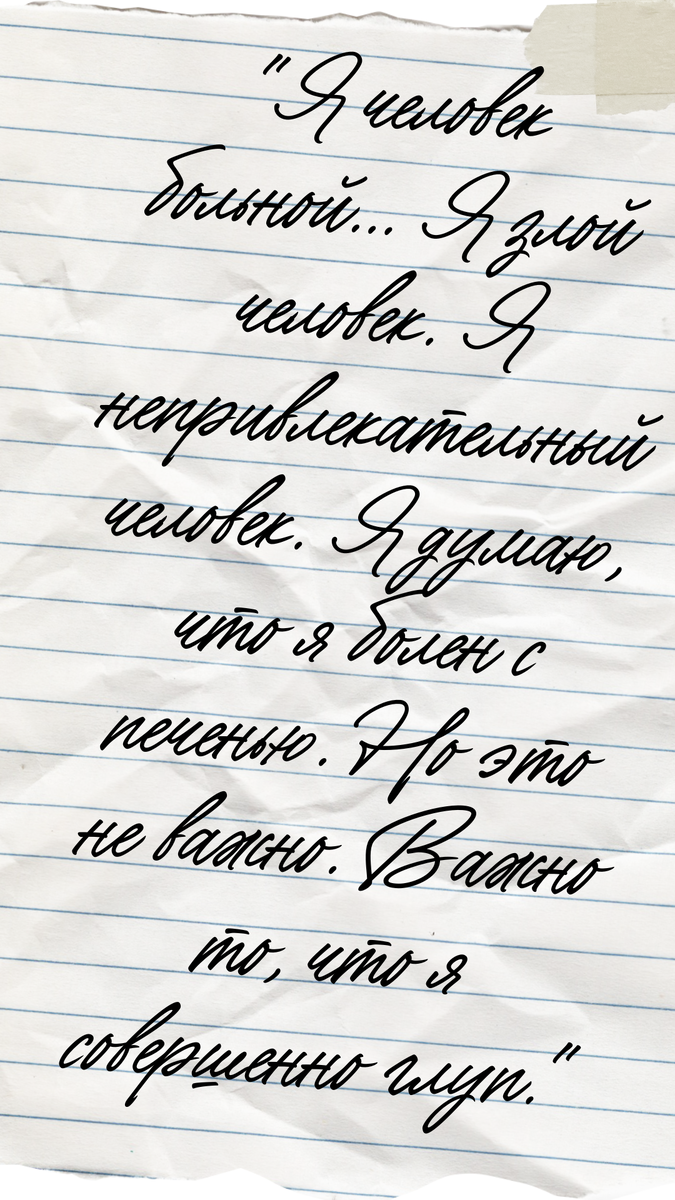 "Я человек
больной... Я злой
человек. Я
непривлекательный
человек. Я думаю,
что я болен с
печенью. Но это
не важно. Важно
то, что я
совершенно глуп."